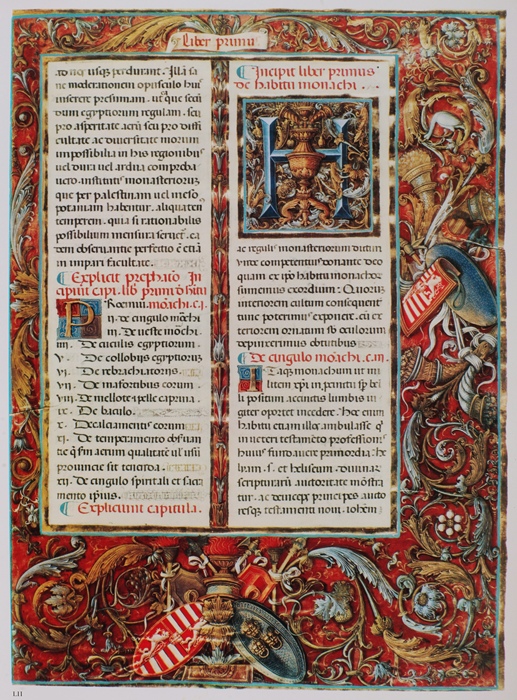 Liber primus
ad nos usq; perdurant. Illa sa
ne moderationem opusculo huic
inserere presumam. ut que secu
dum egyptiorum regulam. seu
pro asperitate aeru seu pro diffi
cultate ac diversitate morum
impossibilia in his regionibus
vel dura vel ardua comproba
vero. institutis monasteriorum
que per palestinam vel meso
potamiam habentur. aliquaten
temperem. quia si rationabilis
possibilium mensura servet. ea
dem observantie perfectio e etia
in impari facultate.
Explicit prephatio In
cipiut capi. lib. primi d hitu
Proemiu. moachi. c. i.
ii. de cingulo moachi
iii. De veste moachi.
iiii. De cuculis egyptiorum
v. De collobijs egyptiorum
vi. De rebrachiatorijs.
vii. De mafortibus eorum
viii. De mellote & pelle caprina.
ix. De baculo.
x. De calciamentis eorum
xi. De temperamento observan
tie qsm aerum qualitate vel usu
provincie sit tenenda.
xi. De cingulo spirituali et sacra
mento ipsius.
Expliciunt capitula.
Incipit liber primus
de habitu monachi.
H
ac regulis monasteriorum dicturi
unde competentius donante deo
quam ex ipo habitu monachor
sumemus exordium. Quorum
interiorem cultum consequent
tunc poterimus exponere. cu ex
teriorem ornatum sb oculorum
expresserimus obtutibus.
De cingulo moachi. ca. ii.
Itaq; monachum ut mi
litem xpi in penitu sp bel
li positum accinctis lumbis in
giter oportet incedere. Hoc enim
habitu etiam illos ambulasse q
in veteri testameto professionis
huius fundavere primordia. he
liam. s. et heliseum. divinar
scripturaru autoritate mostra
tur. ac deinceps principes aucto
resq; testamenti novi. iohem
I.II